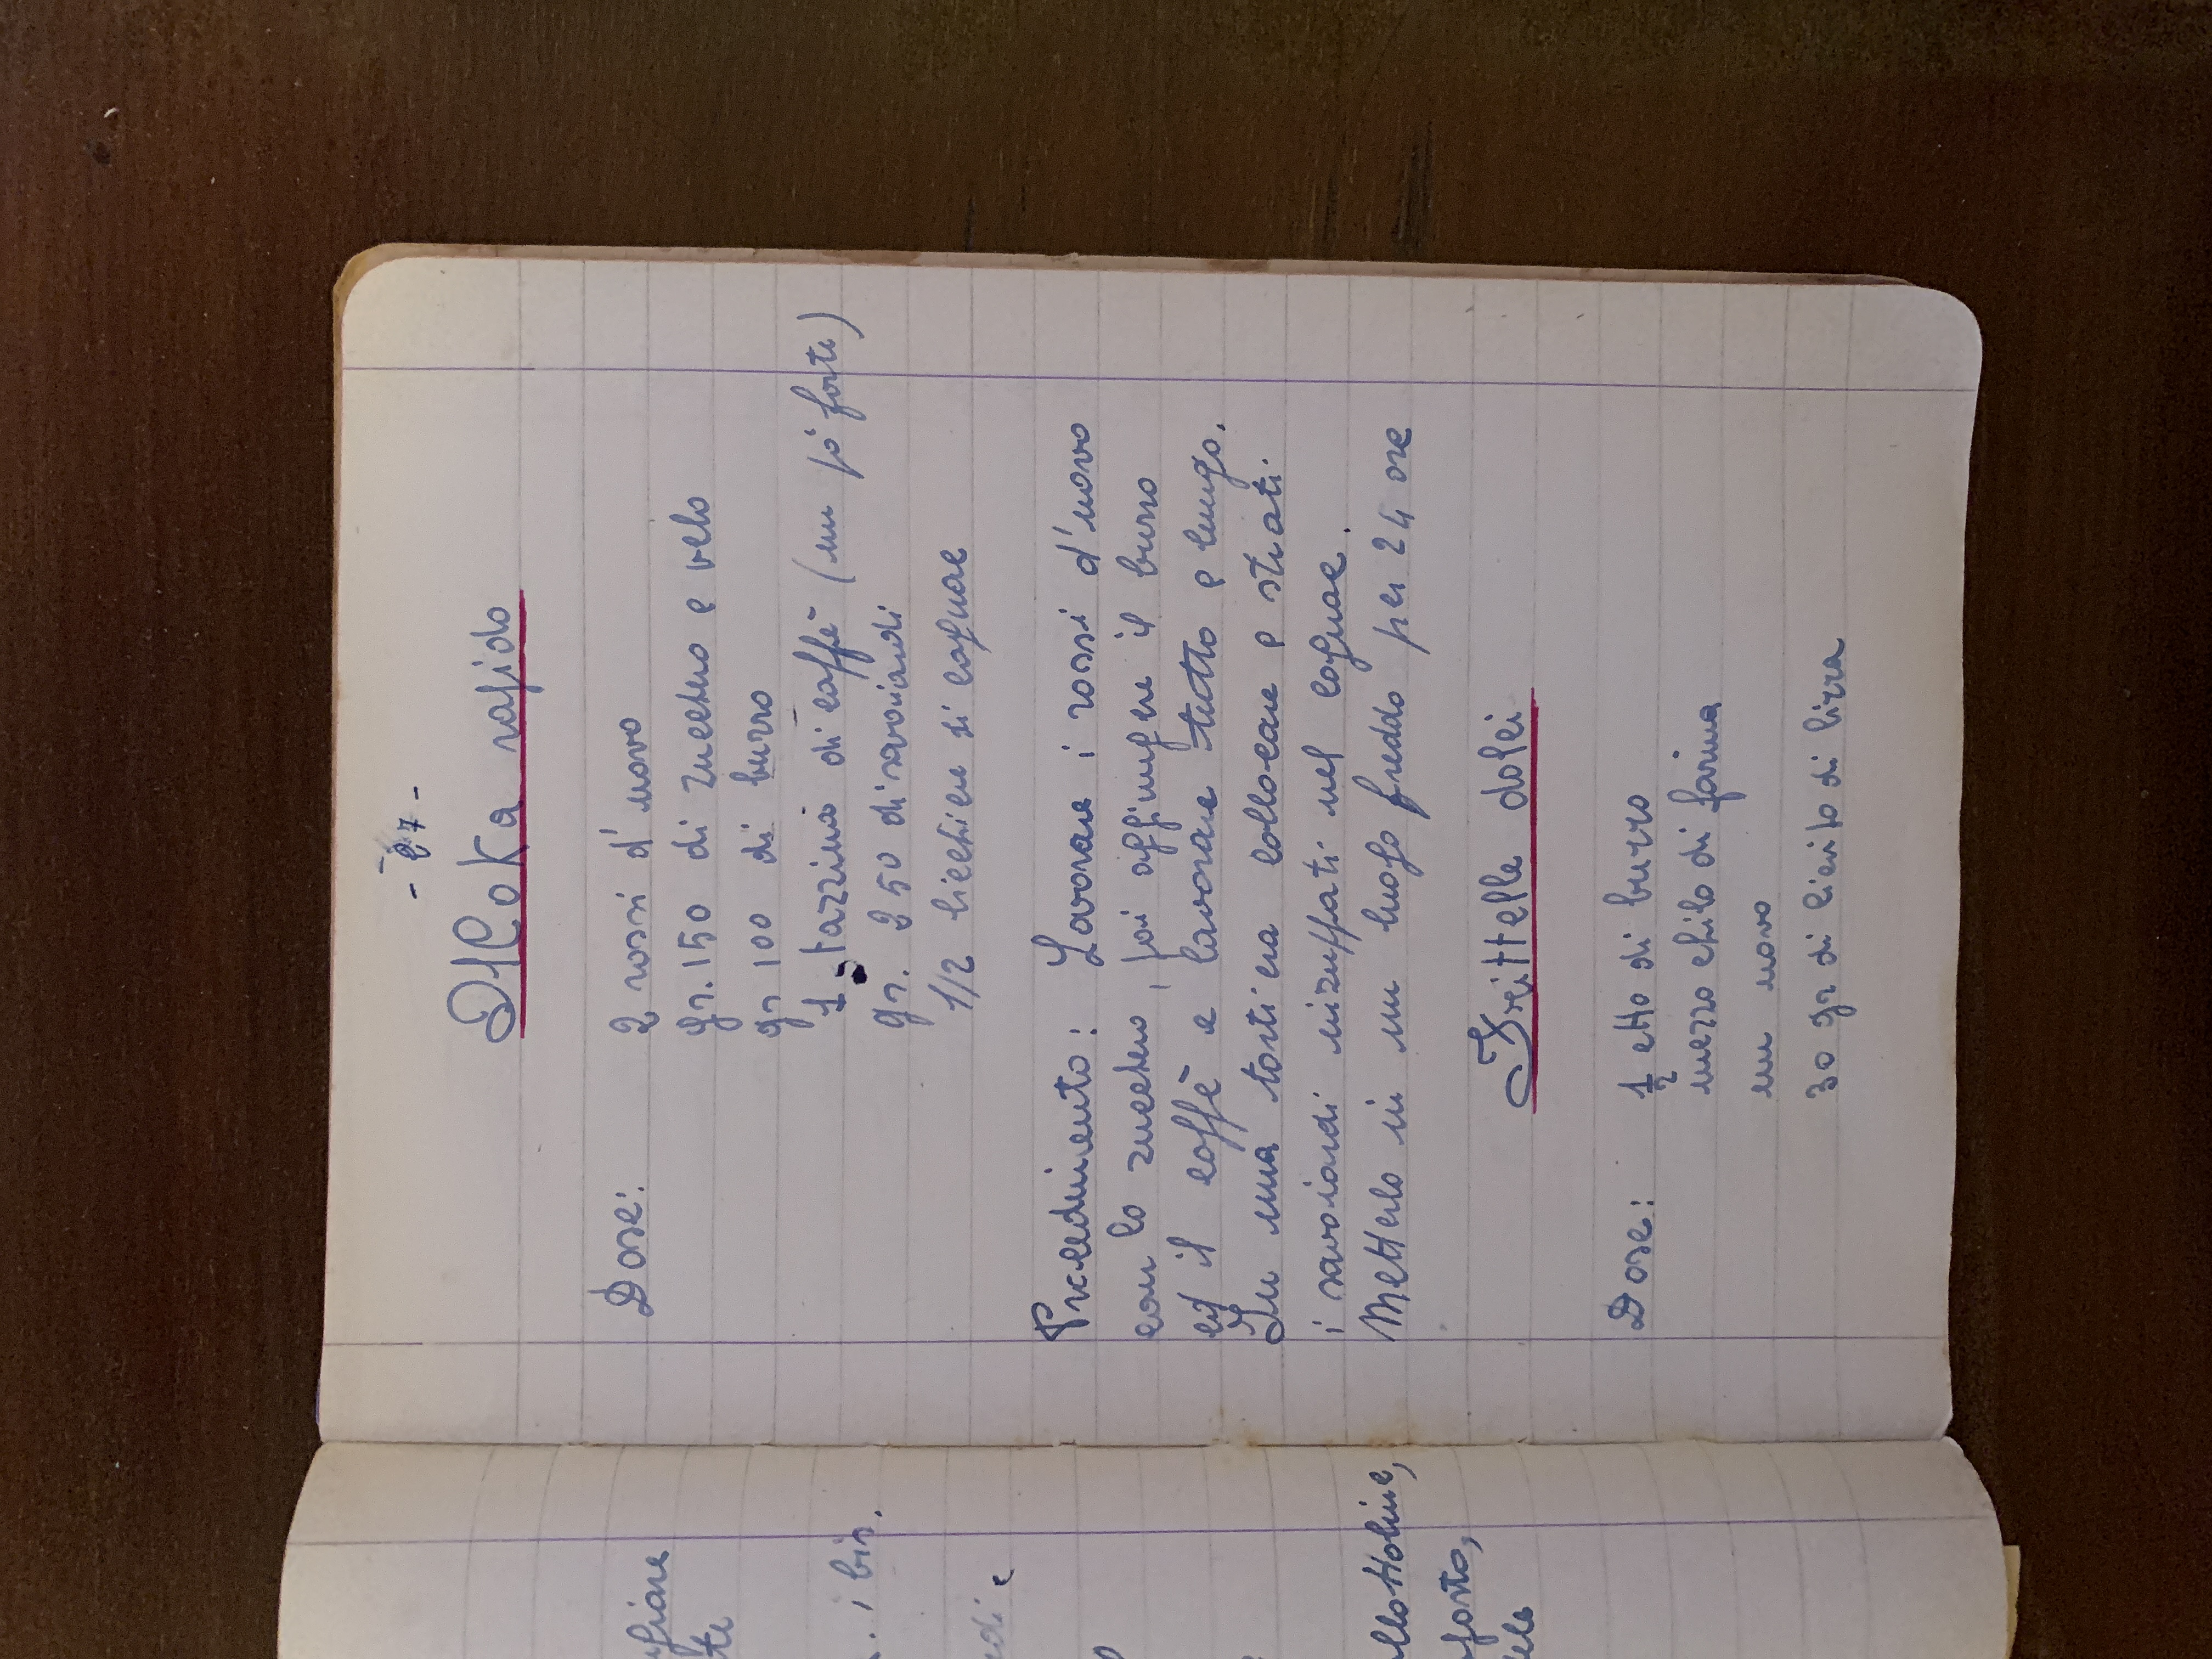 - 27 -
MoKa rapido
Dose:
2 rossi d'uovo
gr. 150 di zucchero a velo
gr 100 di burro
1 tazzina di caffè (un pò forte)
gr. 250 di savoiardi
1/2 bicchiere di cognac
Procedimento: Lavorare i rossi d'uovo
con lo zucchero, poi aggiungere il burro
ed il caffè e lavorare tutto a lungo.
In una tortiera collocare a strati
i savoiardi inzuppati nel cognac.
Metterlo in un luogo freddo per 24 ore
Frittelle dolci
Dose:
1/2 etto di burro
mezzo chilo di farina
un uovo
30 gr di lievito di birra